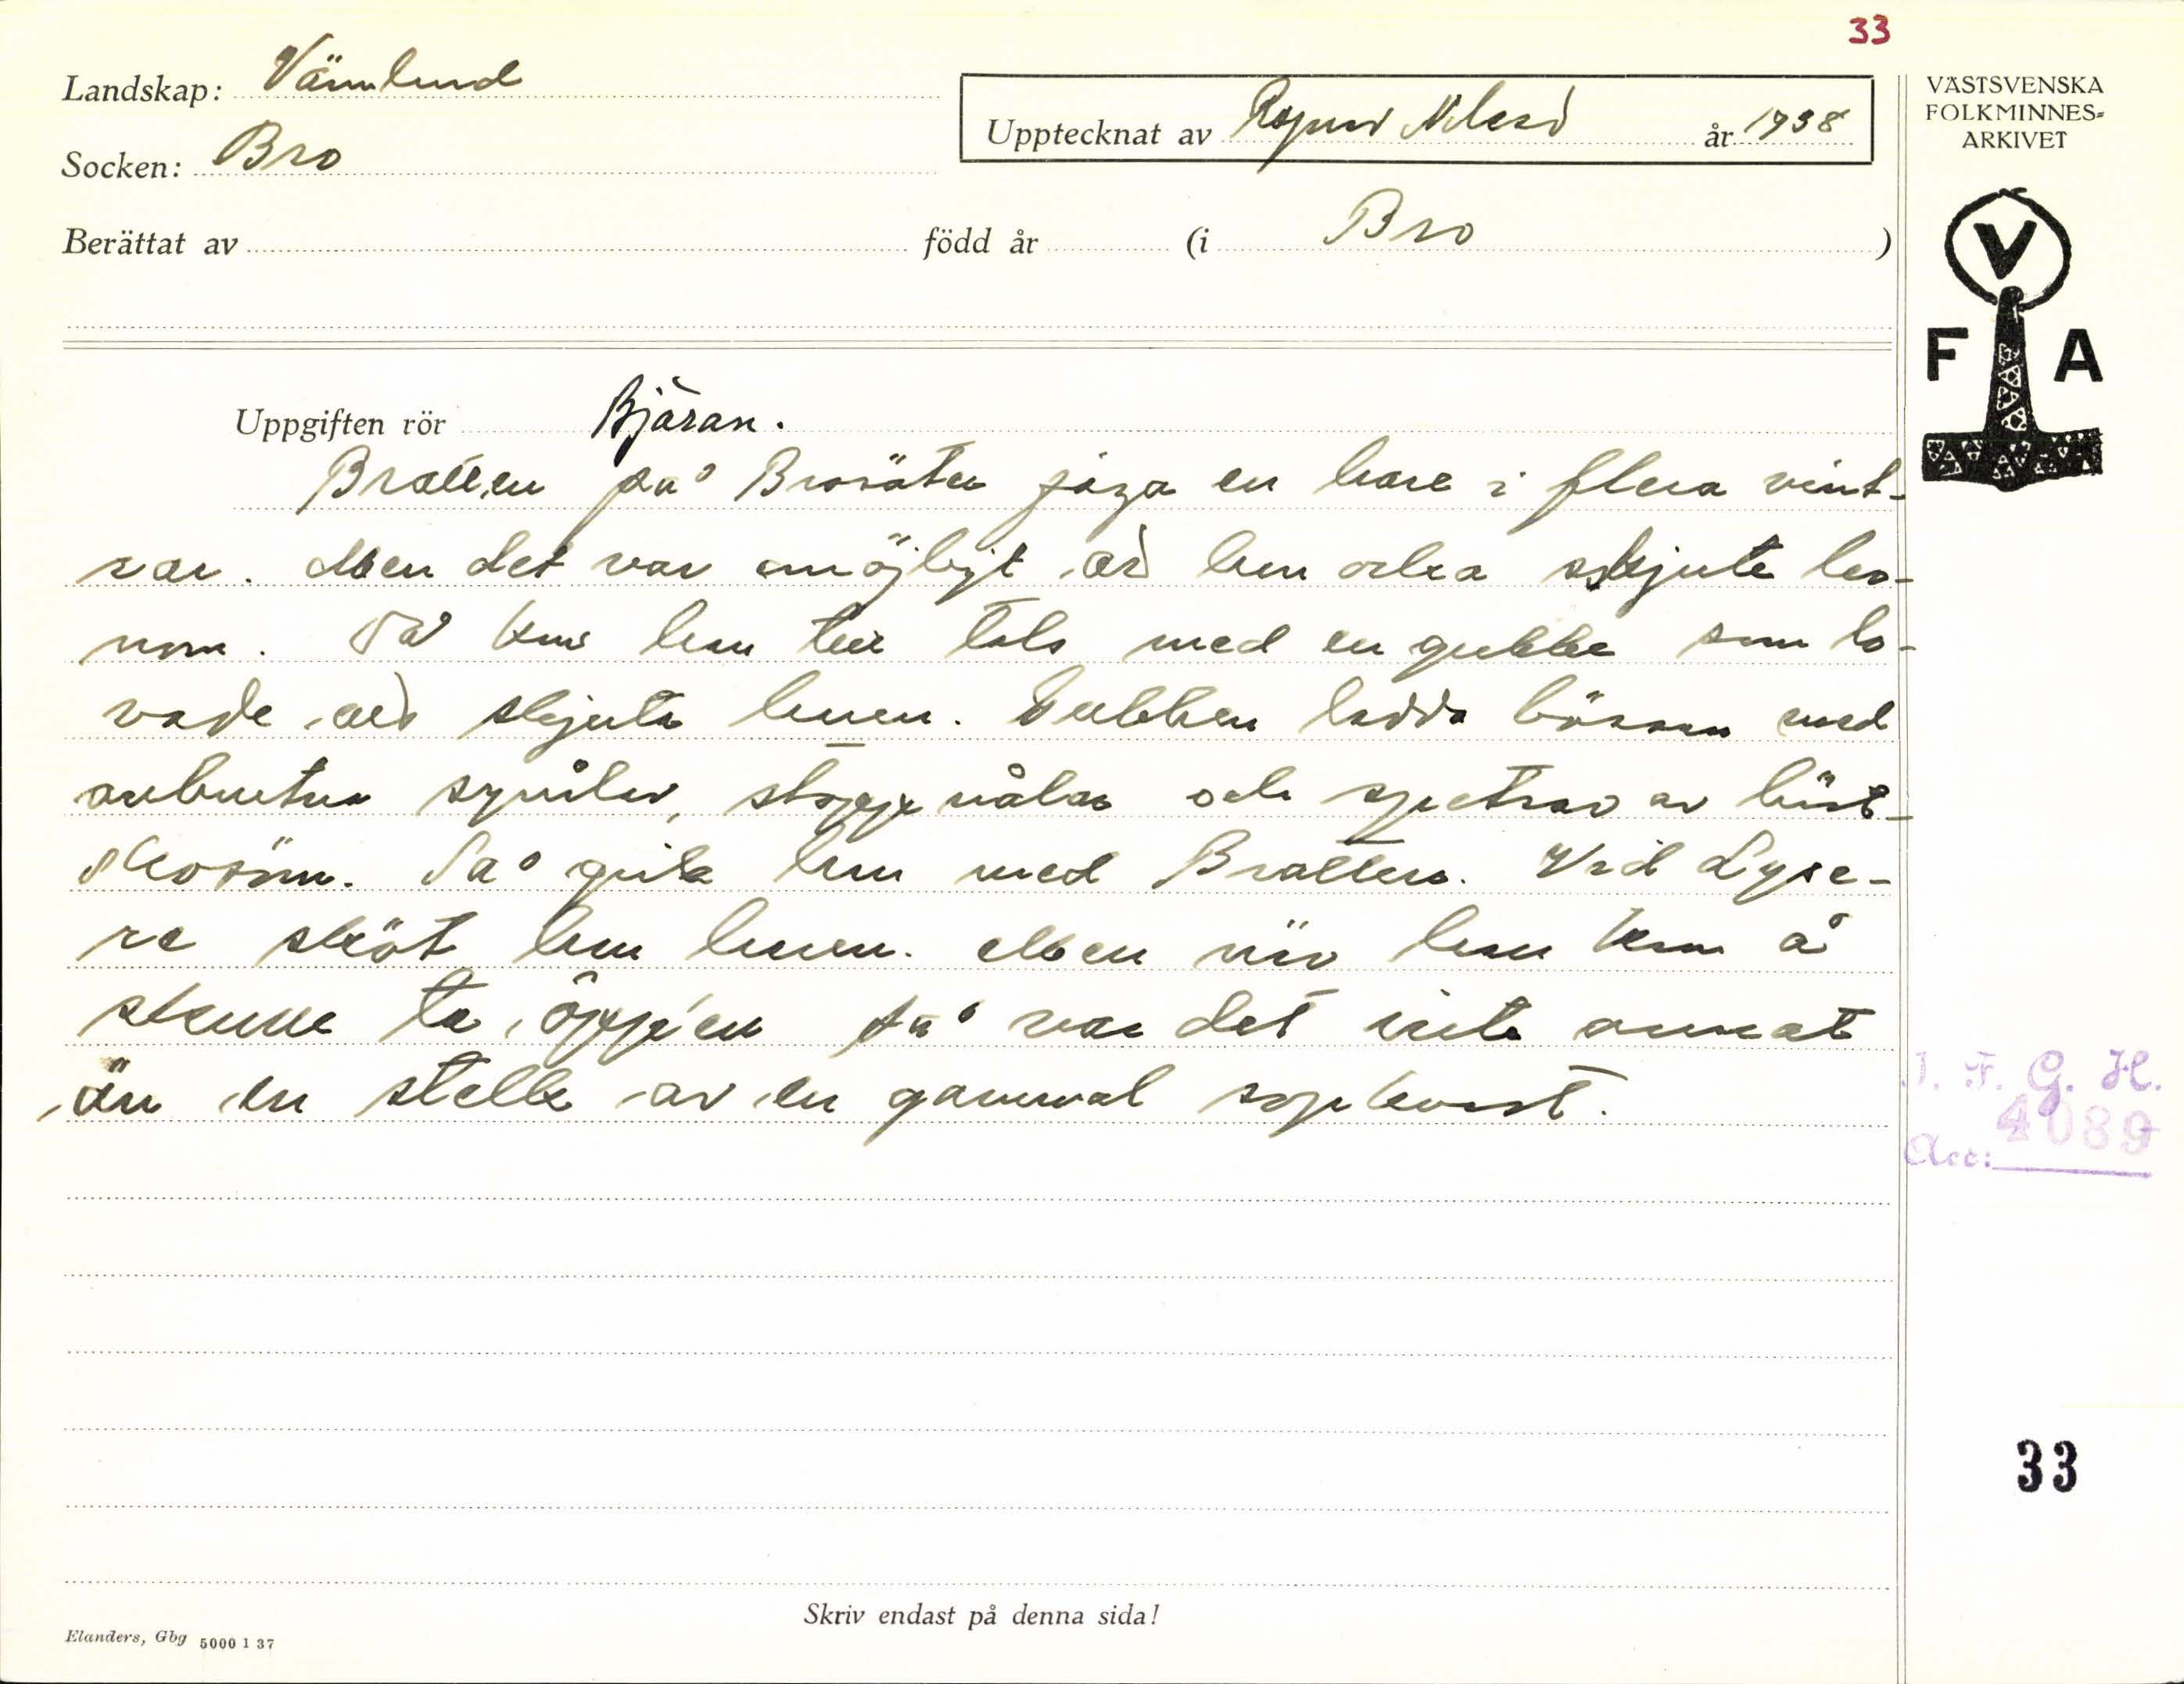 33
Landskap: Värmland
Upptecknat av Ragnar Nilsson år 1938
VÄSTSVENSKA
FOLKMINNES-
ARKIVET
Socken: Bro
Berättat av född år (i Bro )
V
F A
Uppgiften rör Bjäran.
Bratten på Brosäter jaga en hare i flera vint-
rar. Men det var omöjligt att han skjuta ho-
nom. Då kom han till tals med en gubbe som lo-
vade att skjuta haren. Gubben ladda bössan med
avbrutna synålar, stoppnålar och spetsar av häst-
skosöm. Då gick han med Bratten. Vid Lyse-
re sköt han haren. Men när han kom å
skulle ta öpp'en så var det inte annat
än en stelle av en gammal sopkvast.
I. F. G. H.
4089
Acc:
33
Skriv endast på denna sida!
Elanders, Gbg 5000 1 37